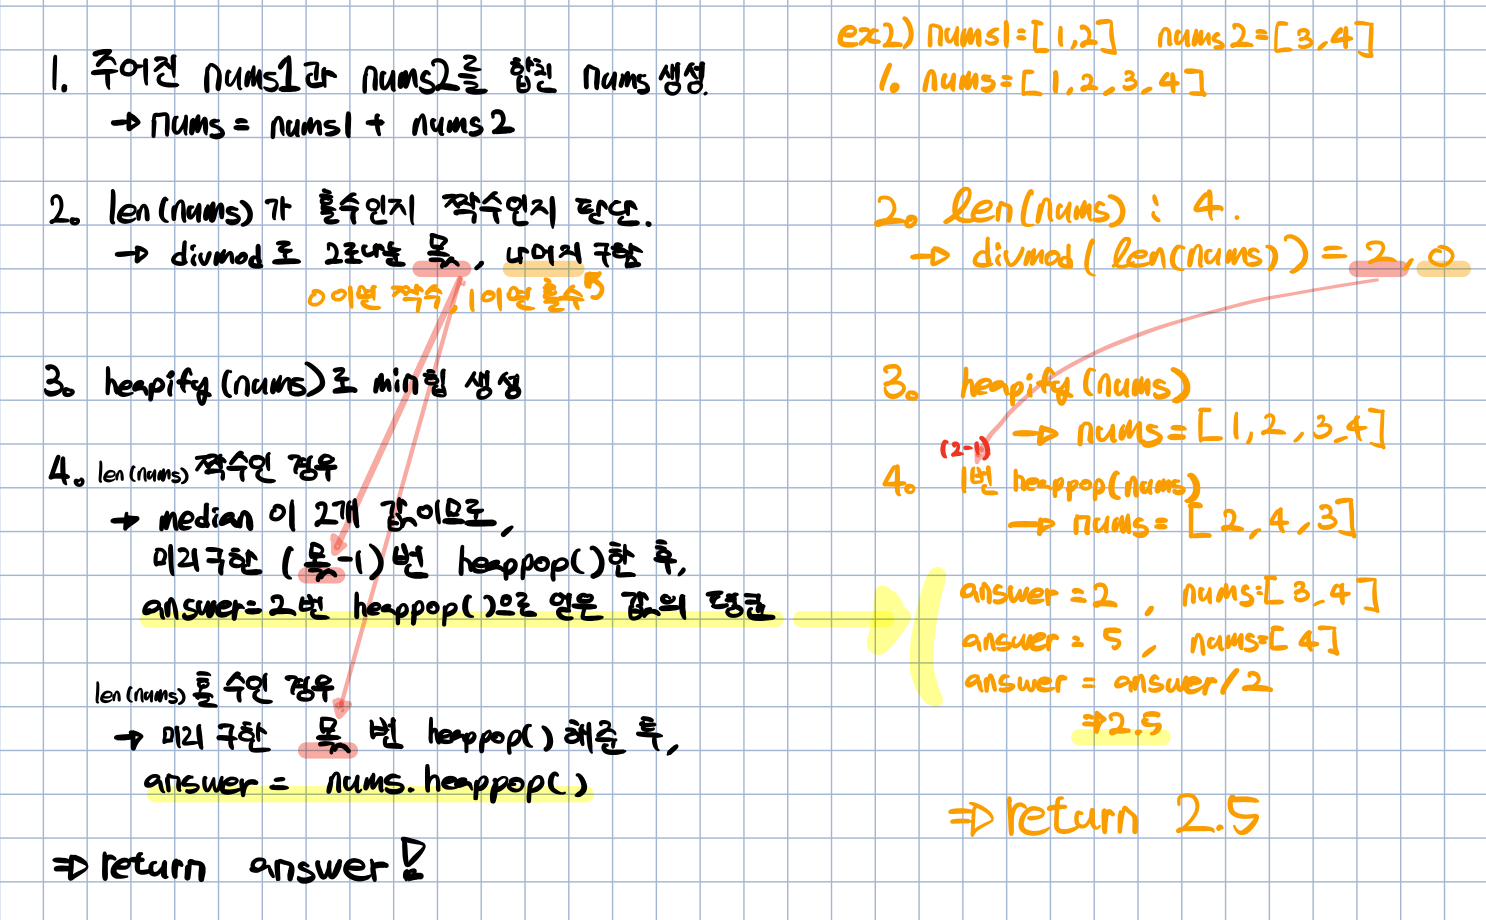 1. 주어진 nums1과 nums2를 합친 nums 생성.
→ nums = nums1 + nums2
2. len(nums)가 홀수인지 짝수인지 판단.
→ divmod로 2로나눈 몫, 나머지 구함
0이면 짝수, 1이면 홀수
3. heapify(nums)로 min힙 생성
4. len(nums) 짝수인 경우
→ median이 2개 값이므로,
미리구한 (몫-1)번 heappop()한 후,
answer=2번 heappop()으로 얻은 값의 평균
len(nums) 홀수인 경우
→ 미리 구한 몫 번 heappop()해준 후,
answer = nums.heappop()
⇒ return answer!
ex2) nums1=[1,2] nums2=[3,4]
1. nums=[1,2,3,4]
2. len(nums) : 4.
→ divmod(len(nums)) = 2, 0
3. heapify(nums)
→ nums=[1,2,3,4]
(2-1)
4. 1번 heappop(nums)
→ nums=[2,4,3]
answer = 2 , nums=[3,4]
answer = 5 , nums=[4]
answer = answer/2
⇒2.5
⇒ return 2.5